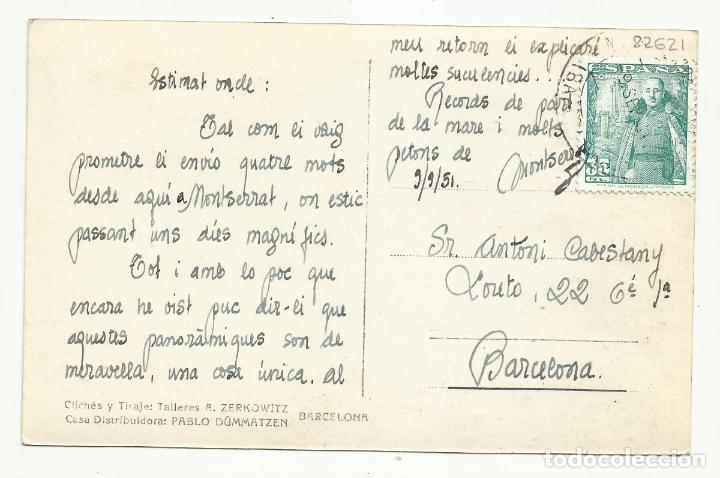 Estimat oncle:
Tal com li vaig
prometre li envio quatre mots
desde aquí a Montserrat, on estic
passant uns dies magnífics.
Tot i amb lo poc que
encara he vist puc dir-li que
aquestes panoràmiques son de
meravella, una cosa única. Al
meu retorn li explicaré
moltes suculencies...
Records de part
de la mare i molts
petons de
Montserrat
9/9/51.
Sr. Antoni Cabestany
Loreto, 22 6é 1a
Barcelona.
82621
ESPAÑA
CORREOS
35
CTS
Clichés y Tiraje: Talleres A. ZERKOWITZ
Casa Distribuidora: PABLO DÜMMATZEN BARCELONA
todocoleccion.net